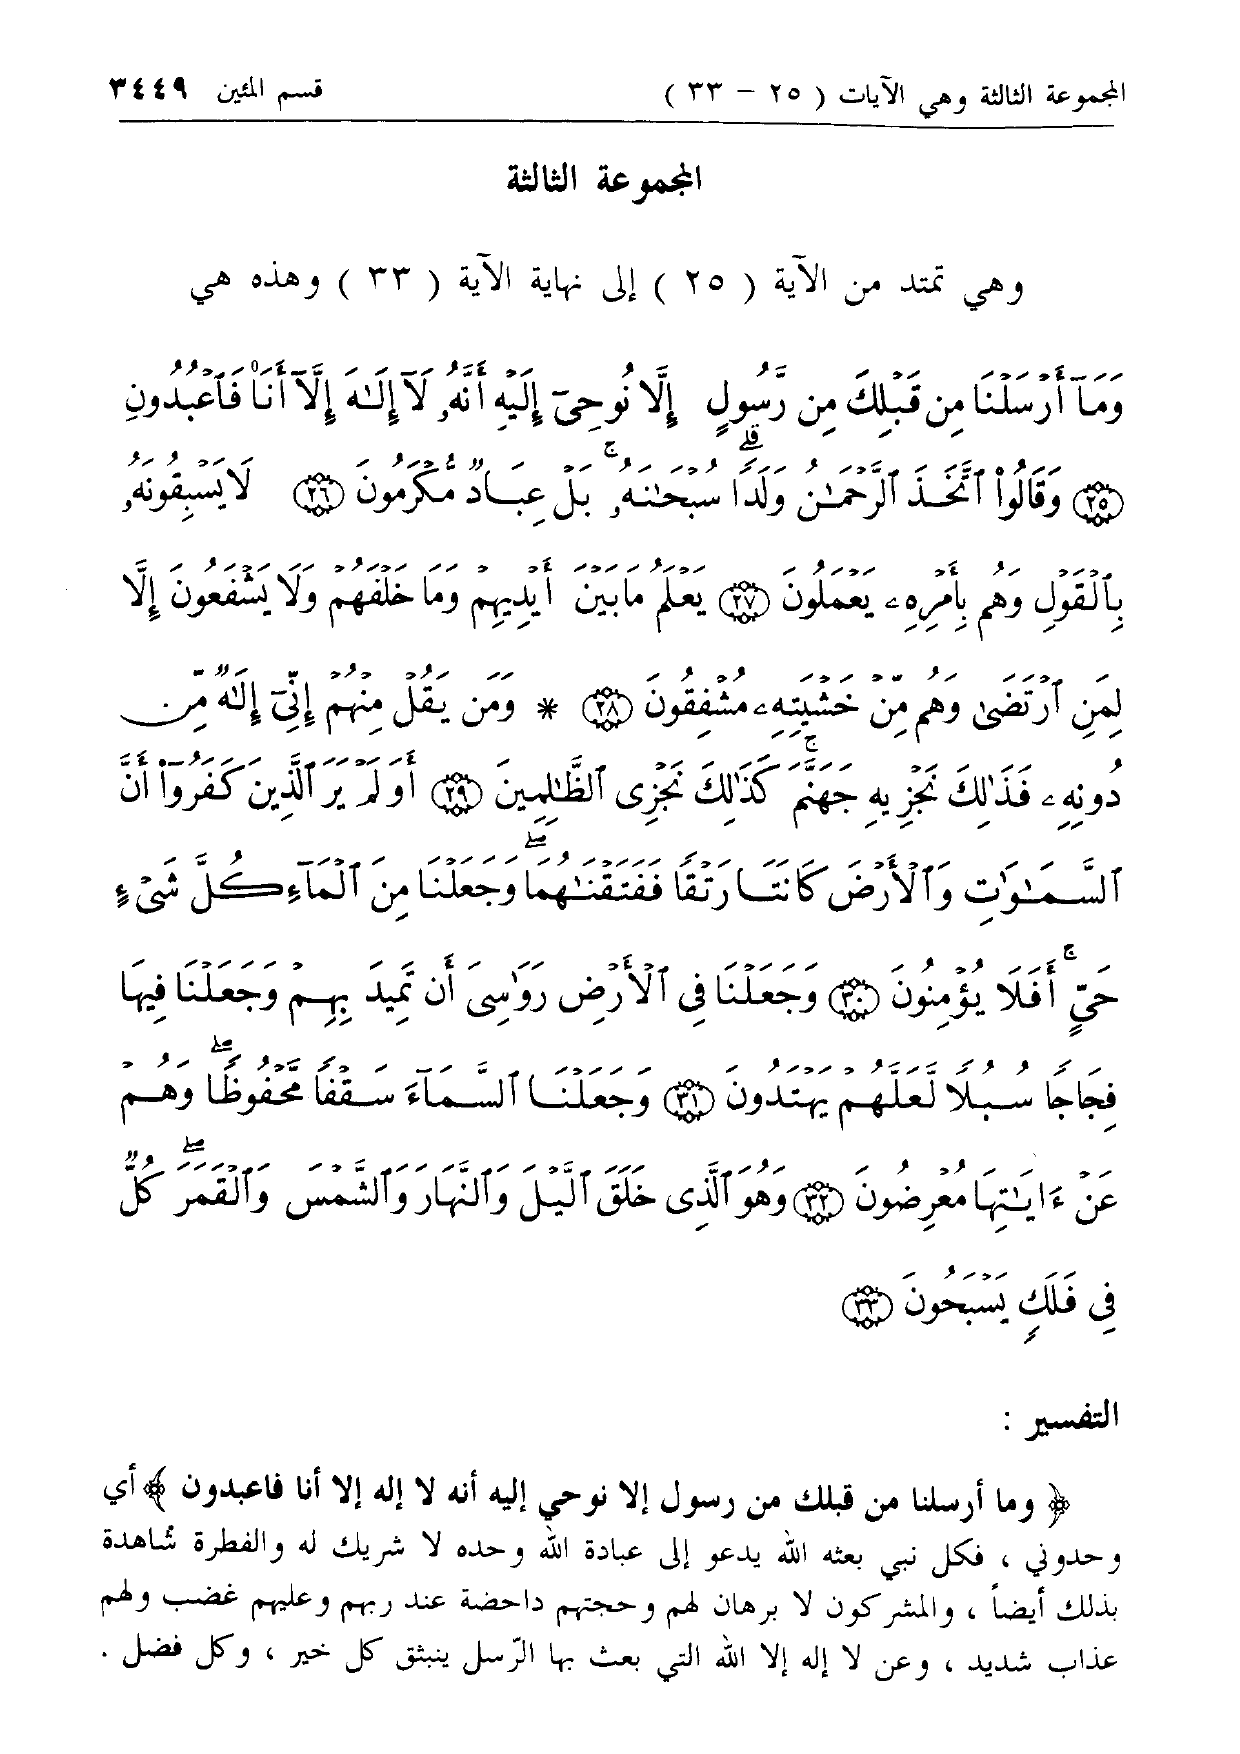 المجموعة الثالثة وهي الآيات ( ٢٥ – ٣٣ ) قسم المئين ٣٤٤٩
المجموعة الثالثة
وهي تمتد من الآية ( ٢٥ ) إلى نهاية الآية ( ٣٣ ) وهذه هي
وَمَآ أَرْسَلْنَا مِن قَبْلِكَ مِن رَّسُولٍ إِلَّا نُوحِىٓ إِلَيْهِ أَنَّهُۥ لَآ إِلَٰهَ إِلَّآ أَنَا۠ فَٱعْبُدُونِ
﴿٢٥﴾ وَقَالُوا۟ ٱتَّخَذَ ٱلرَّحْمَٰنُ وَلَدًا ۗ سُبْحَٰنَهُۥ ۚ بَلْ عِبَادٌ مُّكْرَمُونَ ﴿٢٦﴾ لَا يَسْبِقُونَهُۥ
بِٱلْقَوْلِ وَهُم بِأَمْرِهِۦ يَعْمَلُونَ ﴿٢٧﴾ يَعْلَمُ مَا بَيْنَ أَيْدِيهِمْ وَمَا خَلْفَهُمْ وَلَا يَشْفَعُونَ إِلَّا
لِمَنِ ٱرْتَضَىٰ وَهُم مِّنْ خَشْيَتِهِۦ مُشْفِقُونَ ﴿٢٨﴾ * وَمَن يَقُلْ مِنْهُمْ إِنِّىٓ إِلَٰهٌ مِّن
دُونِهِۦ فَذَٰلِكَ نَجْزِيهِ جَهَنَّمَ ۚ كَذَٰلِكَ نَجْزِى ٱلظَّٰلِمِينَ ﴿٢٩﴾ أَوَلَمْ يَرَ ٱلَّذِينَ كَفَرُوٓا۟ أَنَّ
ٱلسَّمَٰوَٰتِ وَٱلْأَرْضَ كَانَتَا رَتْقًا فَفَتَقْنَٰهُمَا ۖ وَجَعَلْنَا مِنَ ٱلْمَآءِ كُلَّ شَىْءٍ
حَىٍّ ۚ أَفَلَا يُؤْمِنُونَ ﴿٣٠﴾ وَجَعَلْنَا فِى ٱلْأَرْضِ رَوَٰسِىَ أَن تَمِيدَ بِهِمْ وَجَعَلْنَا فِيهَا
فِجَاجًا سُبُلًا لَّعَلَّهُمْ يَهْتَدُونَ ﴿٣١﴾ وَجَعَلْنَا ٱلسَّمَآءَ سَقْفًا مَّحْفُوظًا ۖ وَهُمْ
عَنْ ءَايَٰتِهَا مُعْرِضُونَ ﴿٣٢﴾ وَهُوَ ٱلَّذِى خَلَقَ ٱلَّيْلَ وَٱلنَّهَارَ وَٱلشَّمْسَ وَٱلْقَمَرَ ۖ كُلٌّ
فِى فَلَكٍ يَسْبَحُونَ ﴿٣٣﴾
التفسير :
﴿ وما أرسلنا من قبلك من رسول إلا نوحي إليه أنه لا إله إلا أنا فاعبدون ﴾ أي
وحدوني ، فكل نبي بعثه الله يدعو إلى عبادة الله وحده لا شريك له والفطرة شاهدة
بذلك أيضاً ، والمشركون لا برهان لهم وحجتهم داحضة عند ربهم وعليهم غضب ولهم
عذاب شديد ، وعن لا إله إلا الله التي بعث بها الرّسل ينبثق كل خير ، وكل فضل .